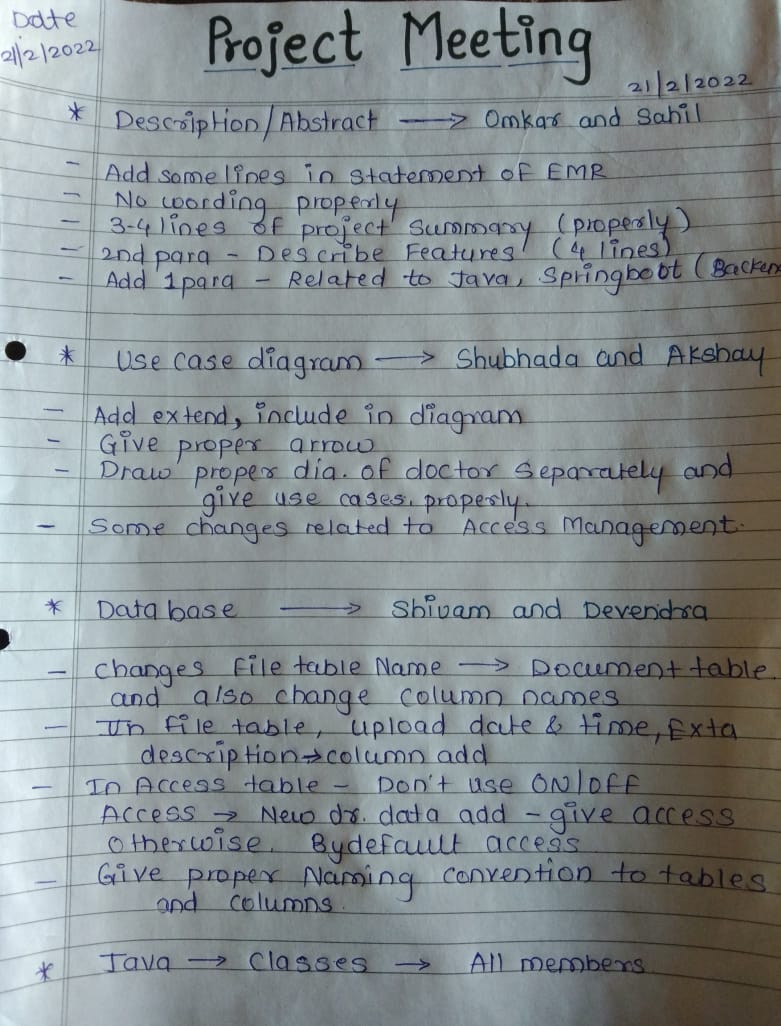 Date
21/2/2022
Project Meeting
21/2/2022
* Description/Abstract → Omkar and Sahil
- Add some lines in statement of EMR
- No wording properly
- 3-4 lines of project summary (properly)
- 2nd para - Describe Features (4 lines)
- Add 1 para - Related to Java, Springboot (Backen
* Use case diagram → Shubhada and Akshay
- Add extend, include in diagram
- Give proper arrow
- Draw proper dia. of doctor separately and
give use cases. properly.
- Some changes related to Access Management.
* Data base → Shivam and Devendra
- Changes File table Name → Document table
and also change column names
- In file table, upload date & time, Exta
description → column add
- In Access table - Don't use ON/OFF
Access → New dr. data add - give access
otherwise. Bydefault access
- Give proper Naming convention to tables
and columns.
* Java → Classes → All members